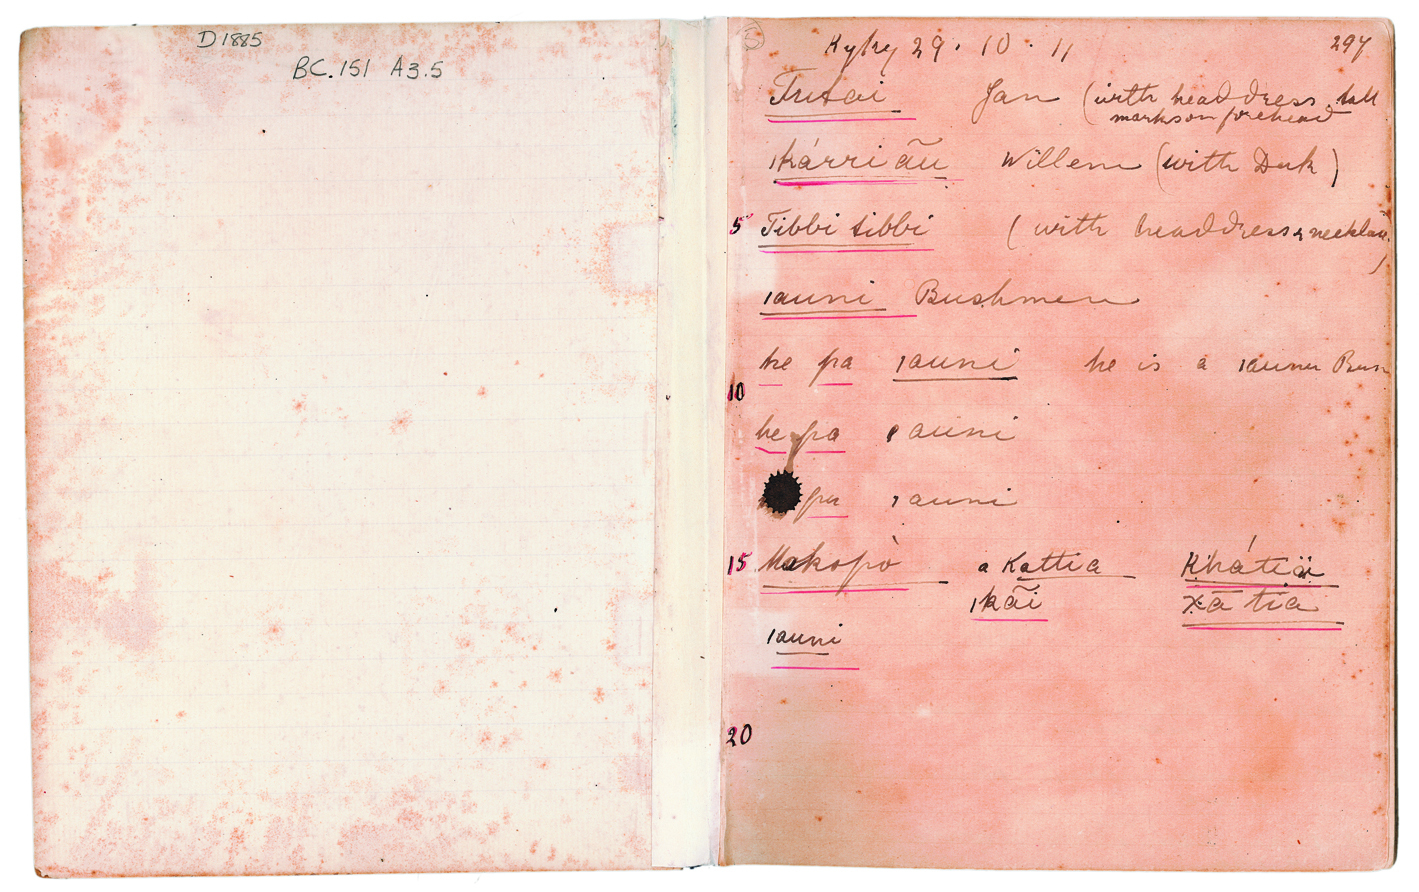 D1885
BC.151 A3.5
5
Kyky 29 . 10 . 11
297
Tusai Jan (with headdress tall
marks on forehead
ǀkárriãu Willem (with Duk)
5 Tibbi tibbi ( with headdress & necklace)
ǀauni Bushmen
he pa ǀauni he is a ǀauni Bus
10
he pa ǀauni
pa ǀauni
15 Makopò a Kattia Khátiä
ǀkãi xā tia
ǀauni
20